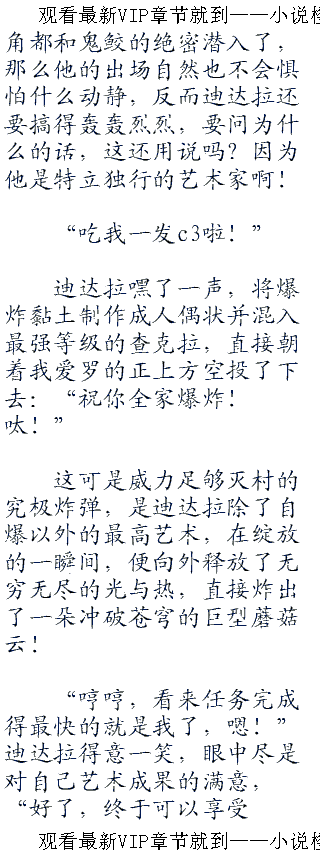 观看最新VIP章节就到——小说检
角都和鬼鲛的绝密潜入了，
那么他的出场自然也不会惧
怕什么动静，反而迪达拉还
要搞得轰轰烈烈，要问为什
么的话，这还用说吗？因为
他是特立独行的艺术家啊！
“吃我一发c3啦！”
迪达拉嘿了一声，将爆
炸黏土制作成人偶状并混入
最强等级的查克拉，直接朝
着我爱罗的正上方空投了下
去：“祝你全家爆炸！
呔！”
这可是威力足够灭村的
究极炸弹，是迪达拉除了自
爆以外的最高艺术，在绽放
的一瞬间，便向外释放了无
穷无尽的光与热，直接炸出
了一朵冲破苍穹的巨型蘑菇
云！
“哼哼，看来任务完成
得最快的就是我了，嗯！”
迪达拉得意一笑，眼中尽是
对自己艺术成果的满意，
“好了，终于可以享受
观看最新VIP章节就到——小说检